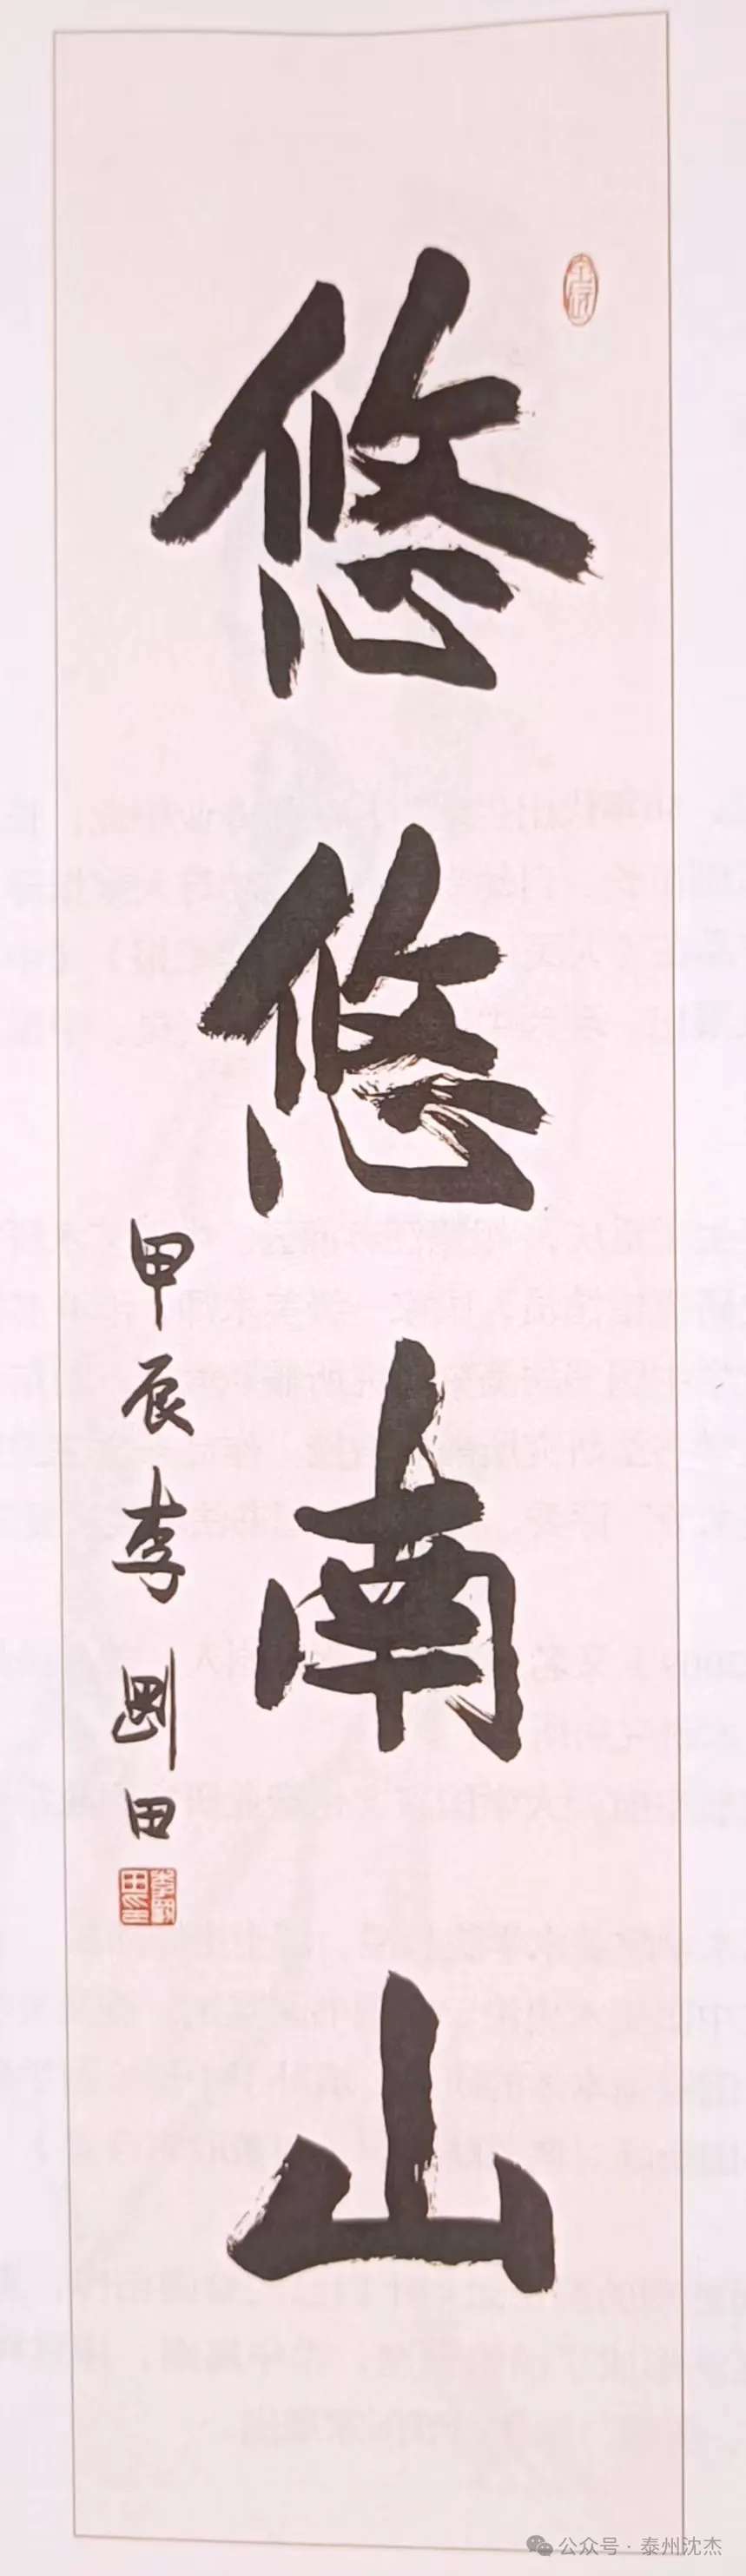 悠悠南山
甲辰李剛田
公众号·泰州沈杰